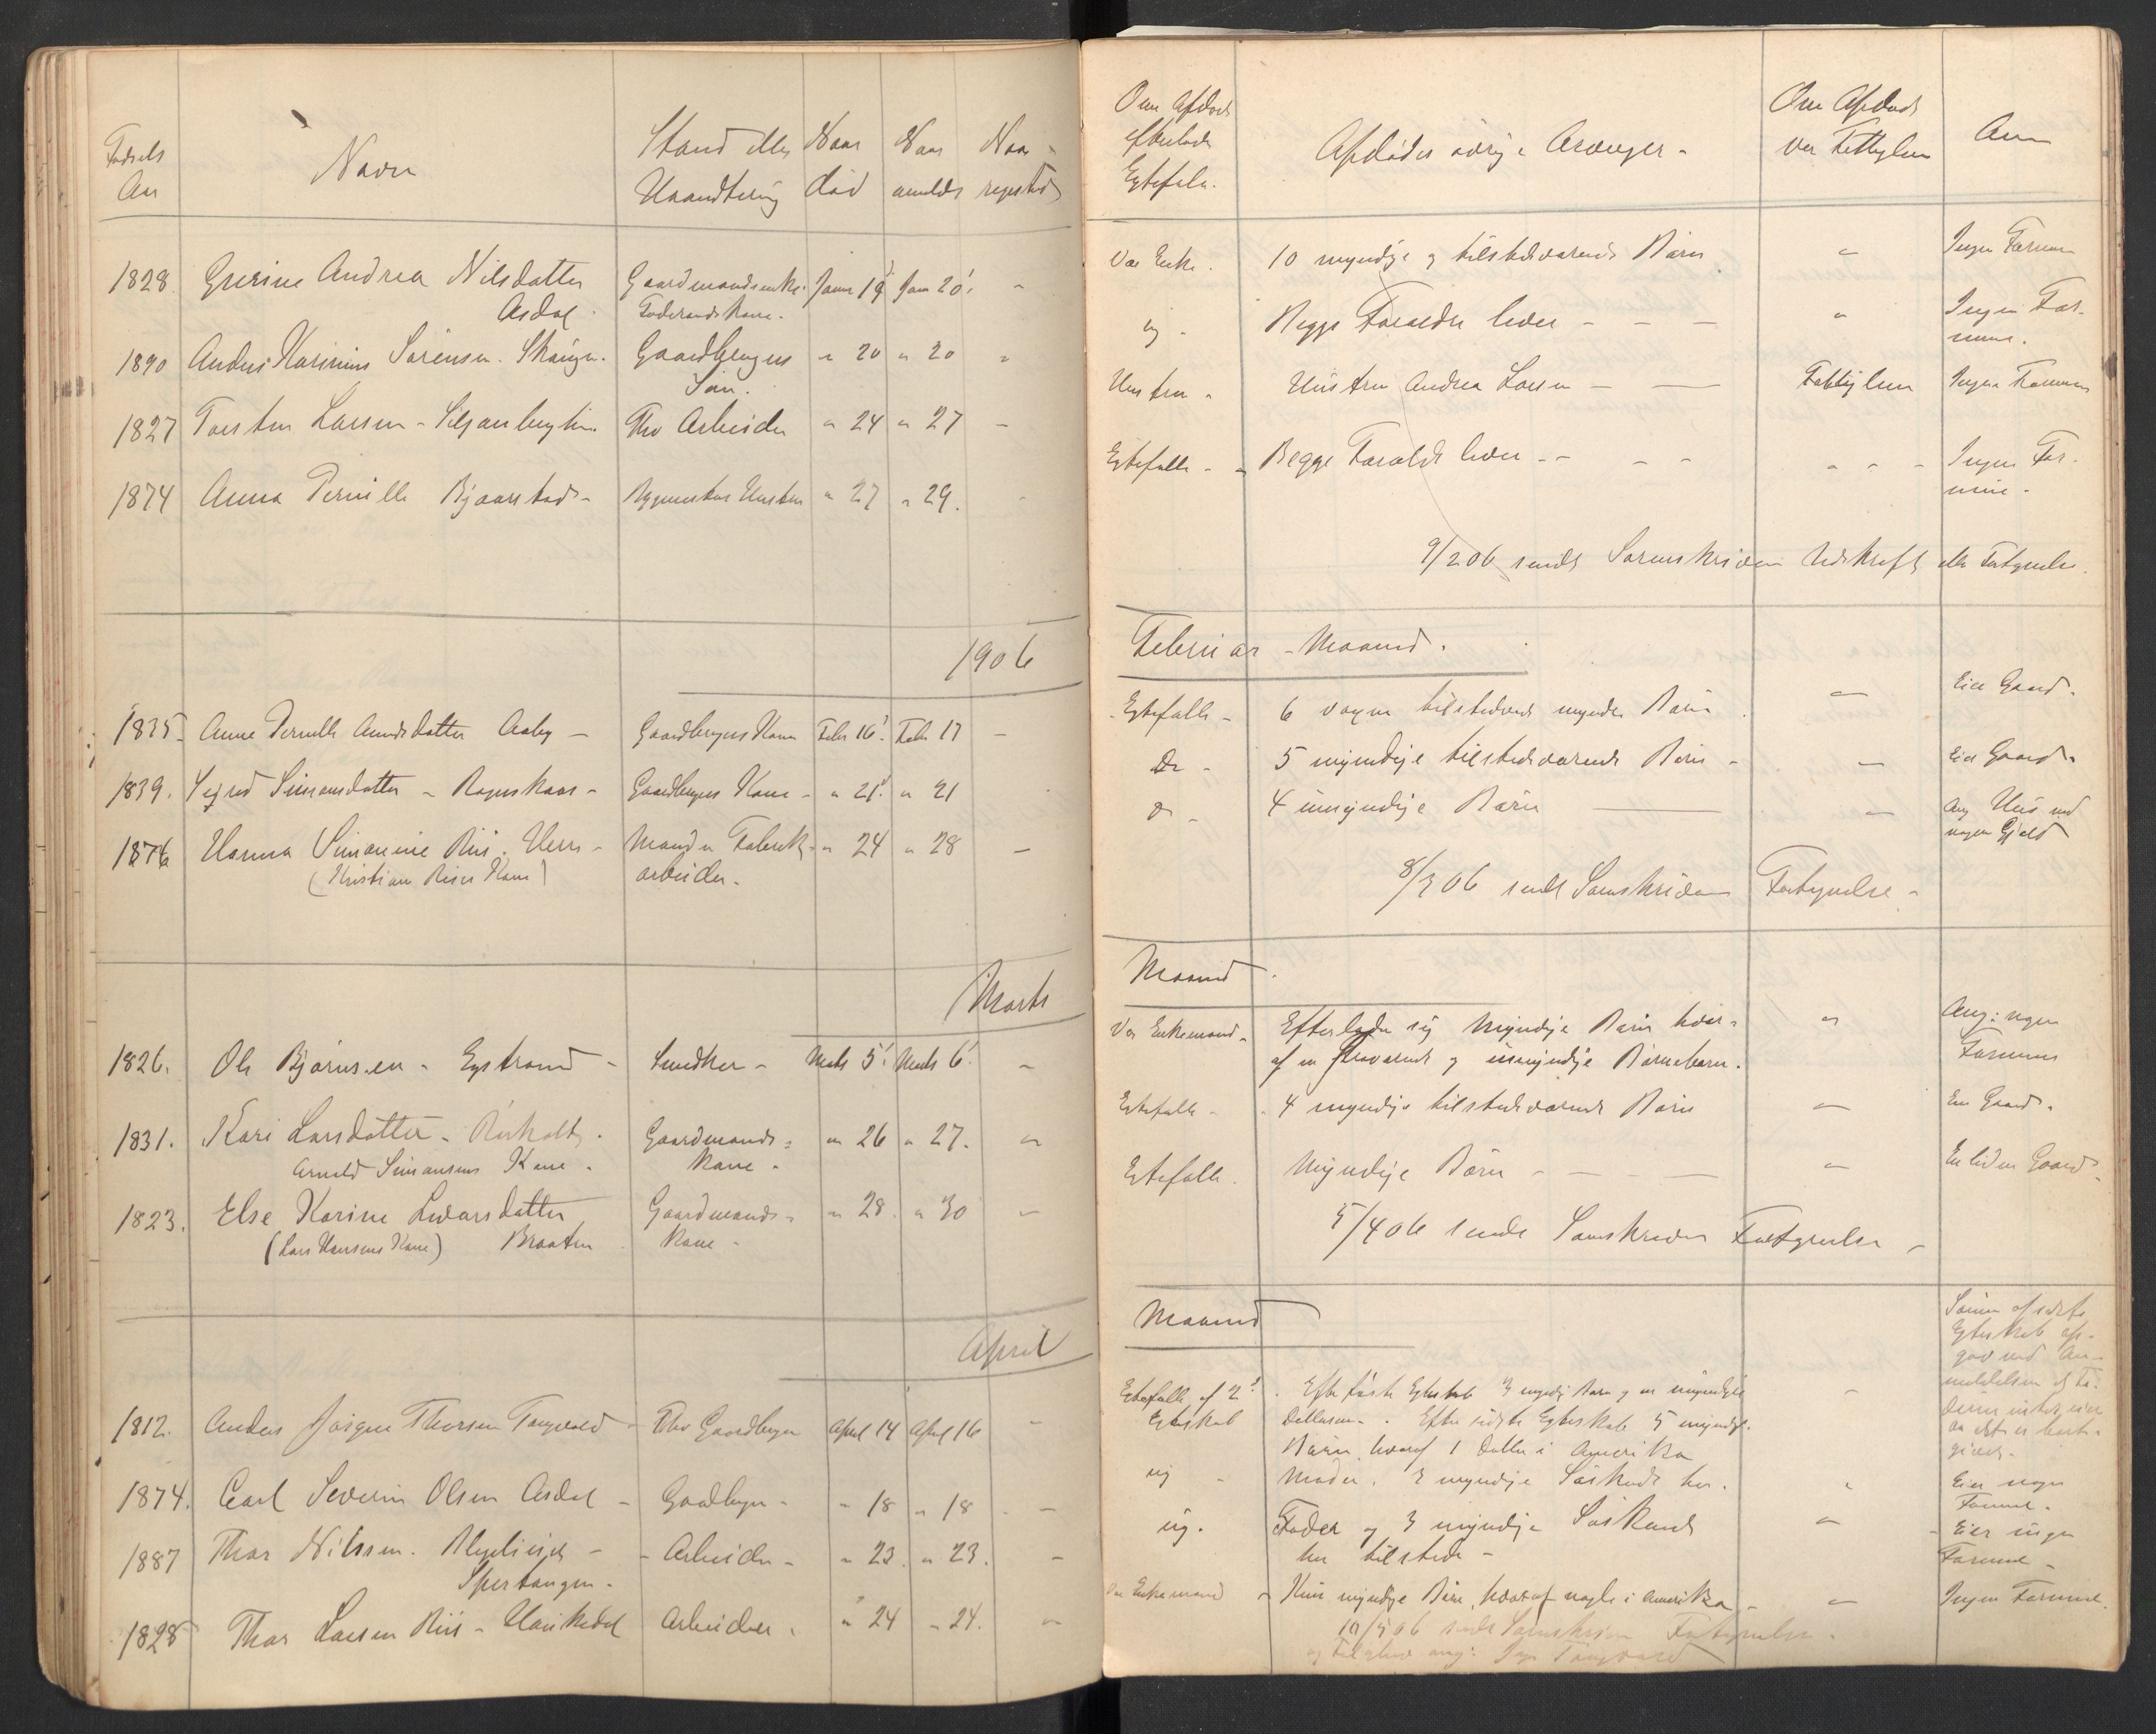 Fødsels
Aar
Navn
Stand eller
Haandtering
Naar
død
Naar
anmeldt
Naar
registret
1828. Grerine Andrea Nilsdatter Gaardmandsenke. Janr 19 Jan 20! -
Asdal. Foderaads Kone.
1890 Anders Karinius Sørensen. Skaugen. Gaardbrugers " 20 " 20 "
Søn.
1827 Torsten Larsen - Fhv Arbeider " 24 " 27 -
1874 Anna Pernille Bjaarstad - Hustru " 27 " 29.
1906
1835 Anne Pernille Amundsdatter Aaby - Gaardbrugers Kone Febr 16! Febr 17 -
1839. Sigrid Simonsdatter - Gaardbrugers Kone - " 21! " 21
1876 Hanna Simonine Riis. - Mand er Fabrik- " 24 " 28 -
(Kristian Riises Kone) arbeider.
Marts
1826. Ole Bjørnsen - Eystrand - Snedker - Marts 5! Marts 6! -
1831. Kari Larsdatter - Gaardmands- " 26 " 27. "
Arnold Simonsens Kone. Kone.
1823. Else Karine Ledvarsdatter Gaardmands- " 28. " 30 -
(Lars Hansens Kone) Braaten Kone -
April
1812. Anders Thorsen Tangvald - Fhv Gaardbruger April 14 April 16 -
1874. Carl Severin Olsen Asdal - Gaardbruger - " 18 " 18 -
1887 Thor Nilssen. - Arbeider - " 23. " 23. -
1828 Thor Larsen Riis - Haukedal Arbeider. " 24 - 24. "
Om Afdøde
efterlader
Egtefelle.
Afdødes øvrige Arvinger -
Om Afdøde
var Fattiglem
Anm
Var Enke. 10 myndige og tilstedeværende Børn " Ingen Formue
ug - Begge Forældre lever - - - " Ingen For-
mue.
Hustru - Hustru Andrea Larsen - — Fattiglem Ingen Formue
Egtefelle - Begge Forældre lever - - - - - - - Ingen For-
mue.
9/2 06 sendt Sorenskriveren Udskrift eller Fortegnelse.
Februar - Maaned.
Egtefelle - 6 myndige Børn. " Eier Gaard.
Do - 5 myndige tilstedeværende Børn - - Eier Gaard.
Do - 4 umyndige Børn — - Ang Hus med
nogen Gjæld
8/3 06 sendt Sorenskriveren Fortegnelse -
Maaned.
Var Enkemand - Efterlader sig myndige Børn hvor- " Ang: nogen
af en fraværende og umyndige Børnebørn. Formue
Egtefelle - 4 myndige tilstedeværende Børn - En Gaard.
Egtefelle. Myndige Børn - - — - En liden Gaard.
5/4 06 sendt Sorenskriver Fortegnelse -
Maaned
Sønnen af sidste
Egteskab op-
gav ved An-
meldelsen at Fa-
deren intet eier
da alt er bort-
givet.
Egtefelle af 2!
Egteskab
Efter første Egteskab 3 myndige Børn og en umyndig
Datters.. Efter sidste Egteskab 5 myndige
Børn hvoraf 1 Datter i Amerika
ug - Moder. 3 myndige Søskende her. " Eier nogen
Formue.
ug. Fader og 3 myndige Søskende " Eier ingen
her tilstede - Formue -
Var Enkemand - Kun myndige Børn, hvoraf nogle i Amerika - - Ingen Formue.
10/5 06 sendt Sorenskriver Fortegnelse -